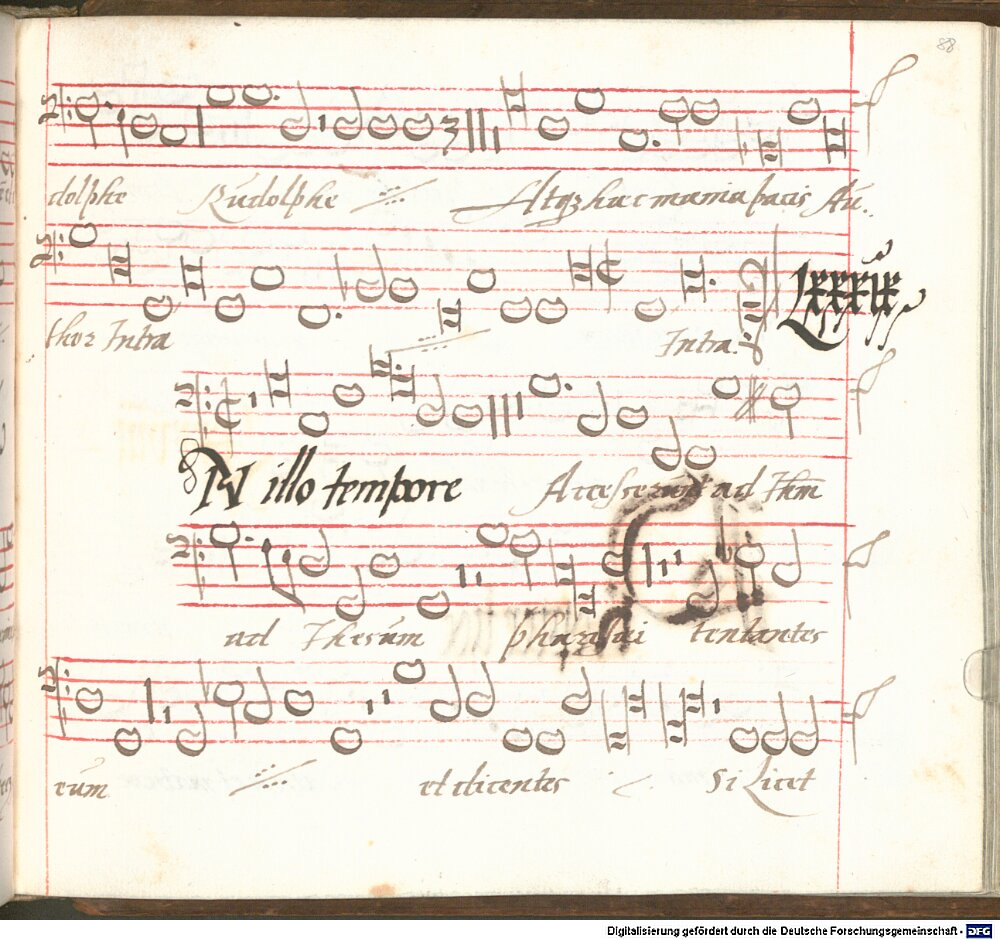 88
dolphe Rudolphe Atqz hac mania pacis Au..
thor Intra Intra. Lxxxix
IN illo tempore Accesserunt ad Ihm
ad Ihesum pharisai tentantes
eum et dicentes Si Licet
Digitalisierung gefördert durch die Deutsche Forschungsgemeinschaft - DFG